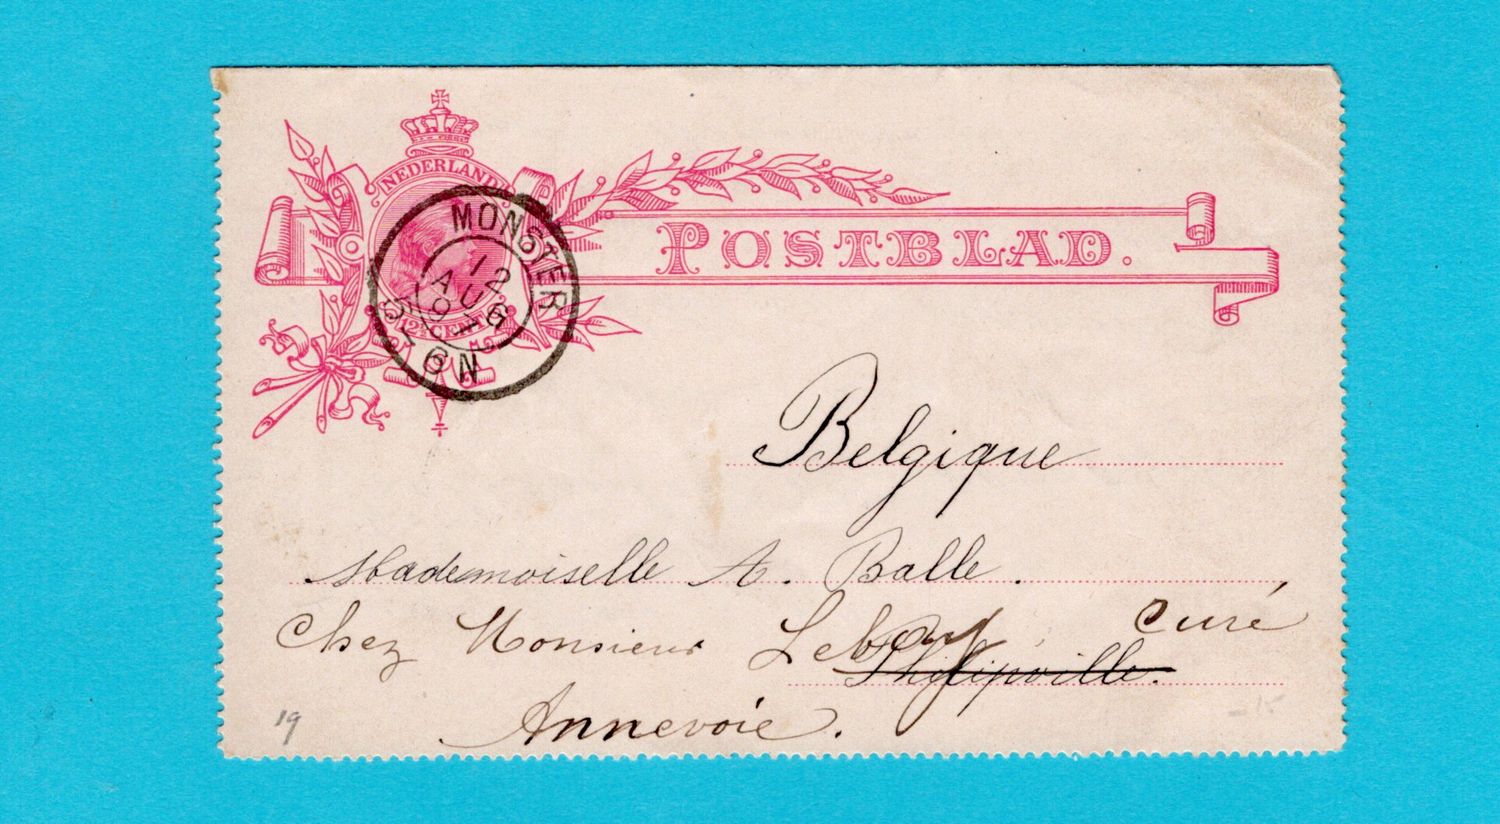 NEDERLAND
POSTBLAD.
MONSTER
12
AUG
9
5-6N
12½ CENT
Belgique
Mademoiselle A. Balle.
Chez Monsieur Leboy, Curé
Philippeville.
Annevoie.
19